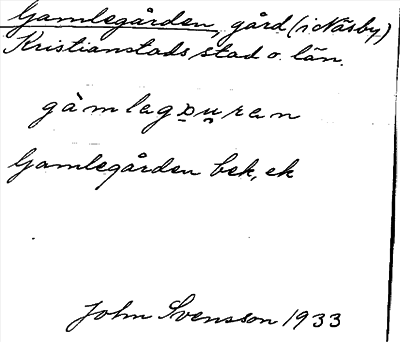 Gamlegården, gård (i Näsby)
Kristianstads stad o. län.
gamlegården bek, ek
John Svensson 1933